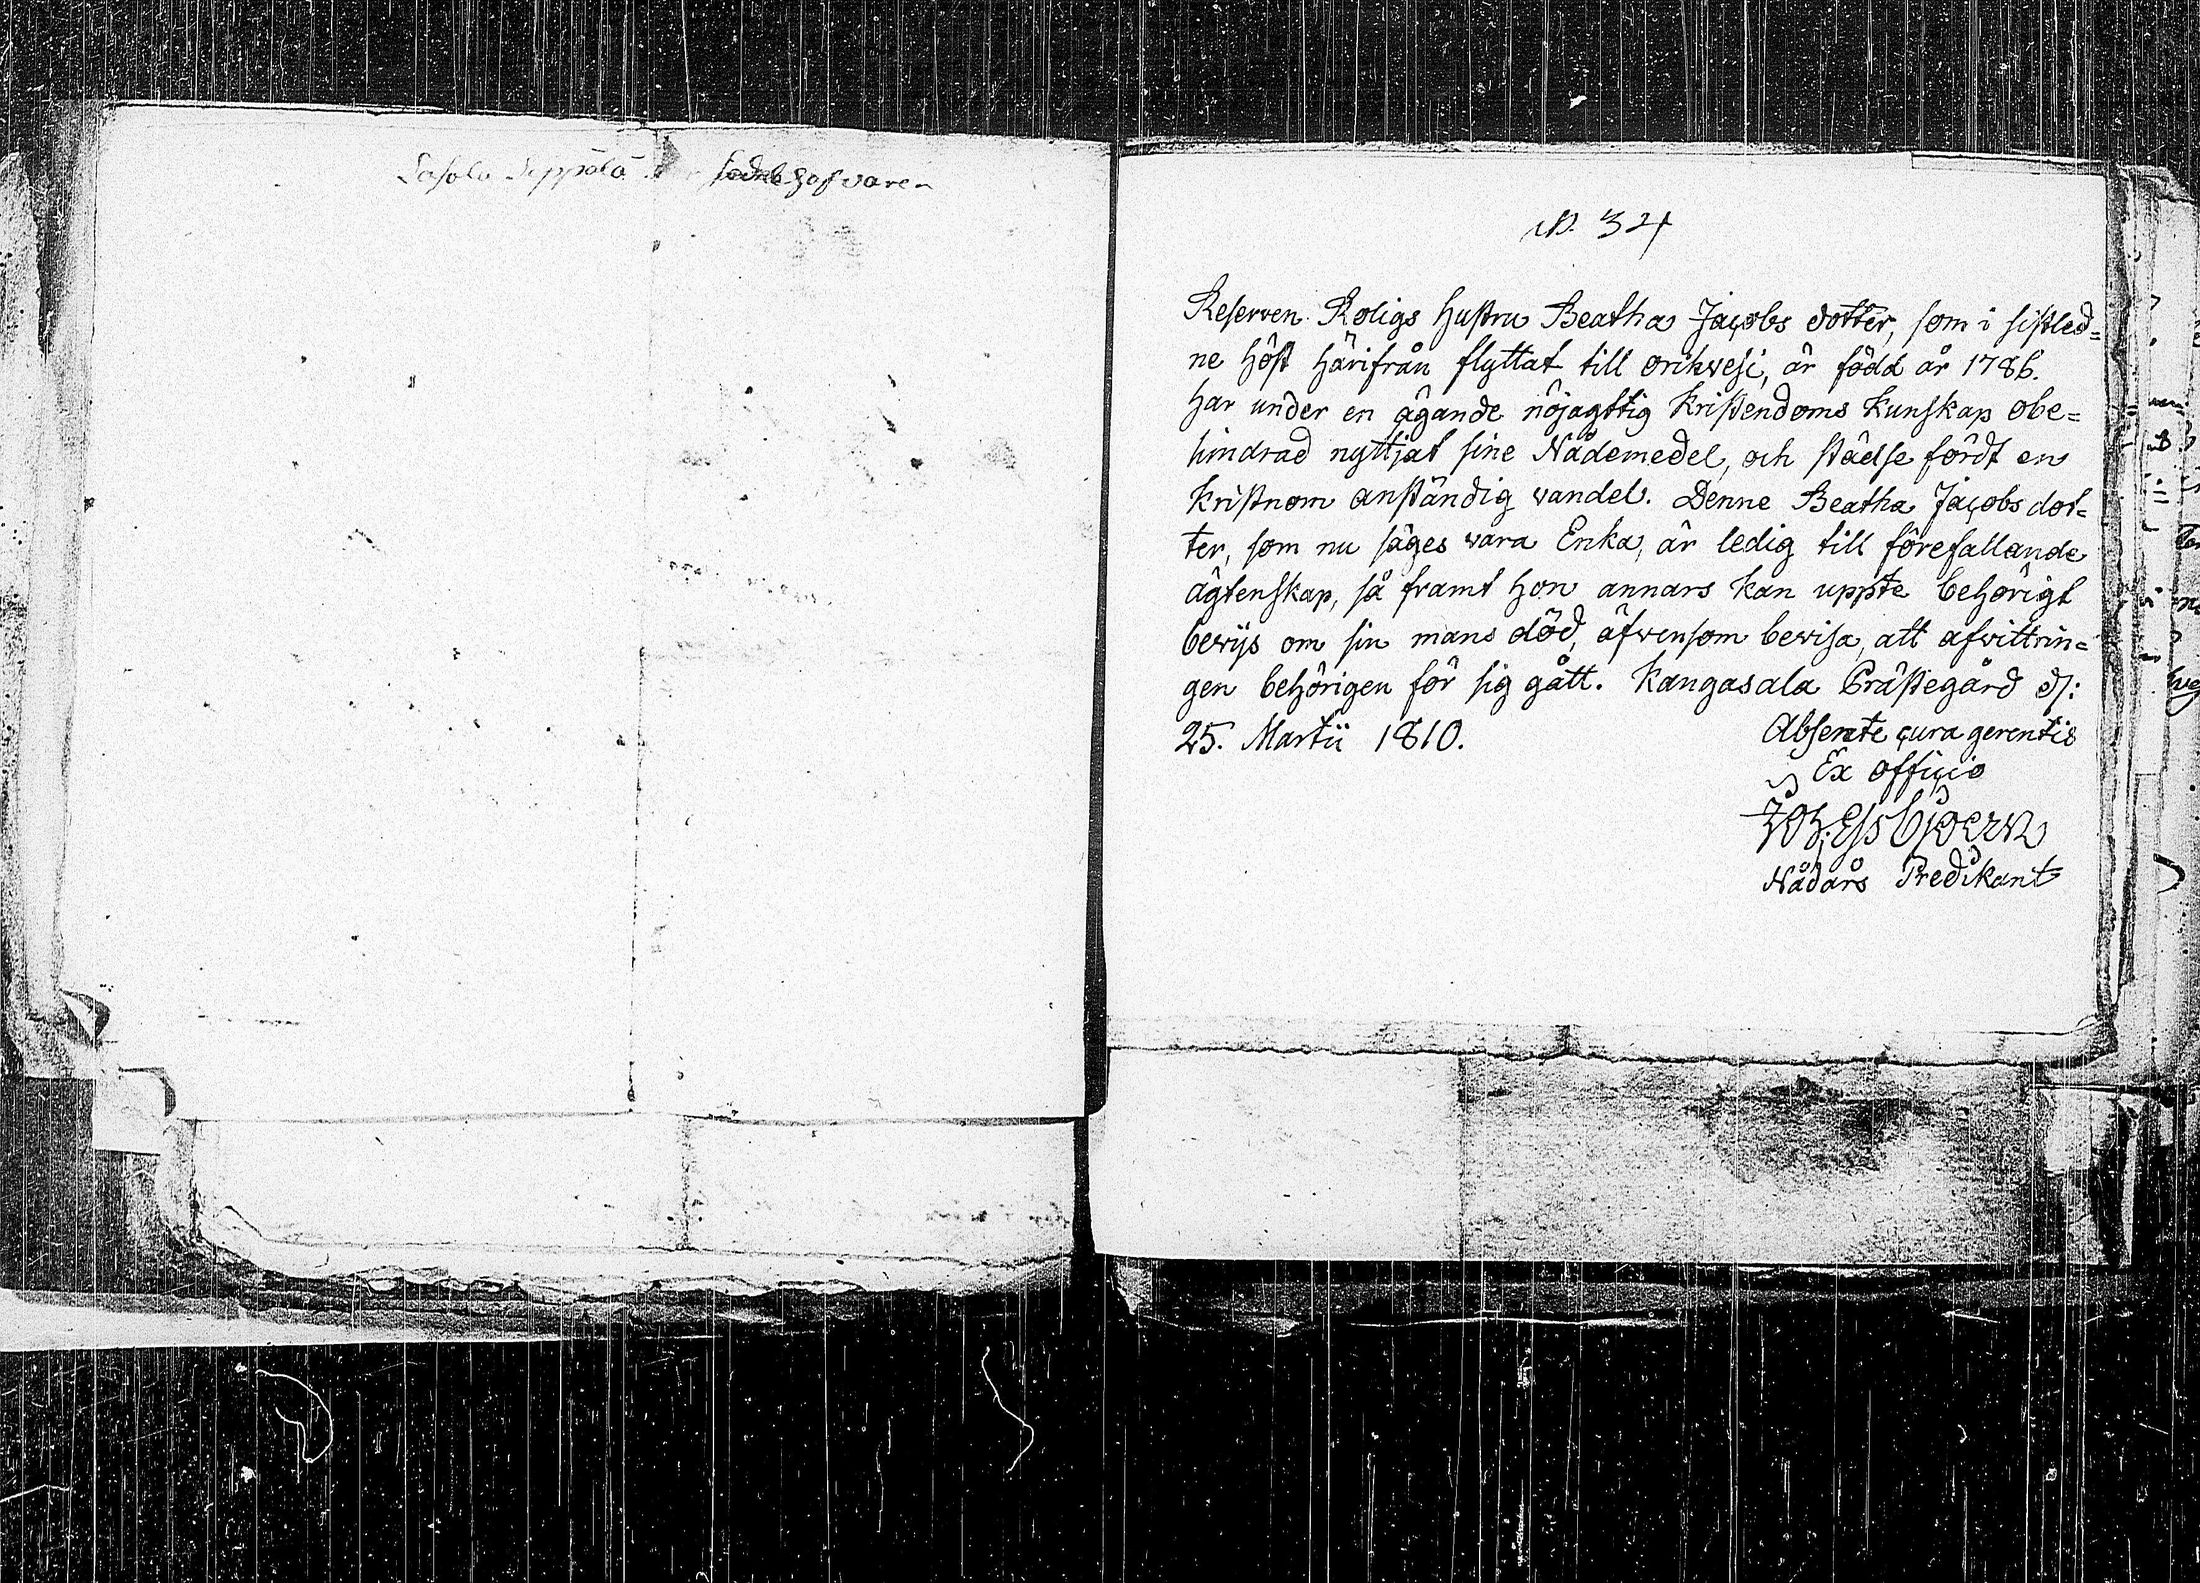 Sasola Seppälä
N. 34
Reserven Roligs Hustru Beatha Jacobs dotter, som i sistled=
ne höst härifrån flyttat till orihvesi, är född år 1786.
Har under en ägande nöjagttig Kristendoms Kunskap obe=
hindrad nyttjat sine Nådemedel, och städse fördt en
Kristnom anständig vandel. Denne Beatha Jacobs dot=
ter, som nu säges vara Enka, är ledig till förefallande
ägtenskap, så framt hon annars kan uppte behörigt
bevijs om sin mans död, äfvensom bevisa, att afvittrin=
gen behörigen för sig gått. Kangasala Prästegård d:
25. Martii 1810.
Absente cura gerentis
Ex officio
Joh: Essbjoern
Nådårs Predikant